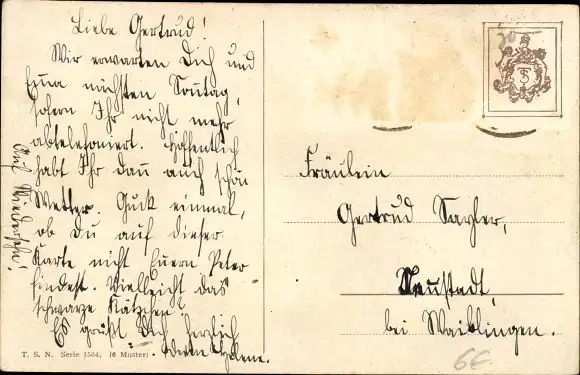 Liebe Gertrud!
Wir erwarten Dich und
Emma nächsten Sonntag,
sofern Ihr nicht mehr
abtelefoniert. Hoffentlich
habt Ihr dann auch schön
Wetter. Guck einmal,
ob Du auf dieser
Karte nicht Euern Peter
findest. Vielleicht das
schwarze Kätzchen?
Es grüßt Dich herzlich
Deine Helene.
Auf Wiedersehn!
T. S. N. Serie 1564. (6 Muster)
Fräulein
Gertrud Sayler,
Neustadt,
bei Waiblingen.
6E